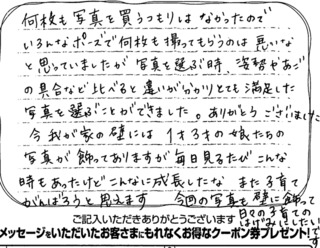 何枚も写真を買うつもりはなかったので
いろんなポーズで何枚も撮ってもらうのは長いな
と思っていましたが写真を選ぶ時、姿勢やあご
の具合など比べると違いが分かりとても満足した
写真を選ぶことができました。ありがとうございました
今我が家の壁には1才3才の娘たちの
写真が飾ってありますが毎日見るたびこんな
時もあったけどこんなに成長したな また子育て
がんばろうと思えます 今回の写真も壁に飾って
日々の子育ての
はげみにしたいです
ご記入いただきありがとうございます
メッセージをいただいたお客さまにもれなくお得なクーポン券プレゼント!